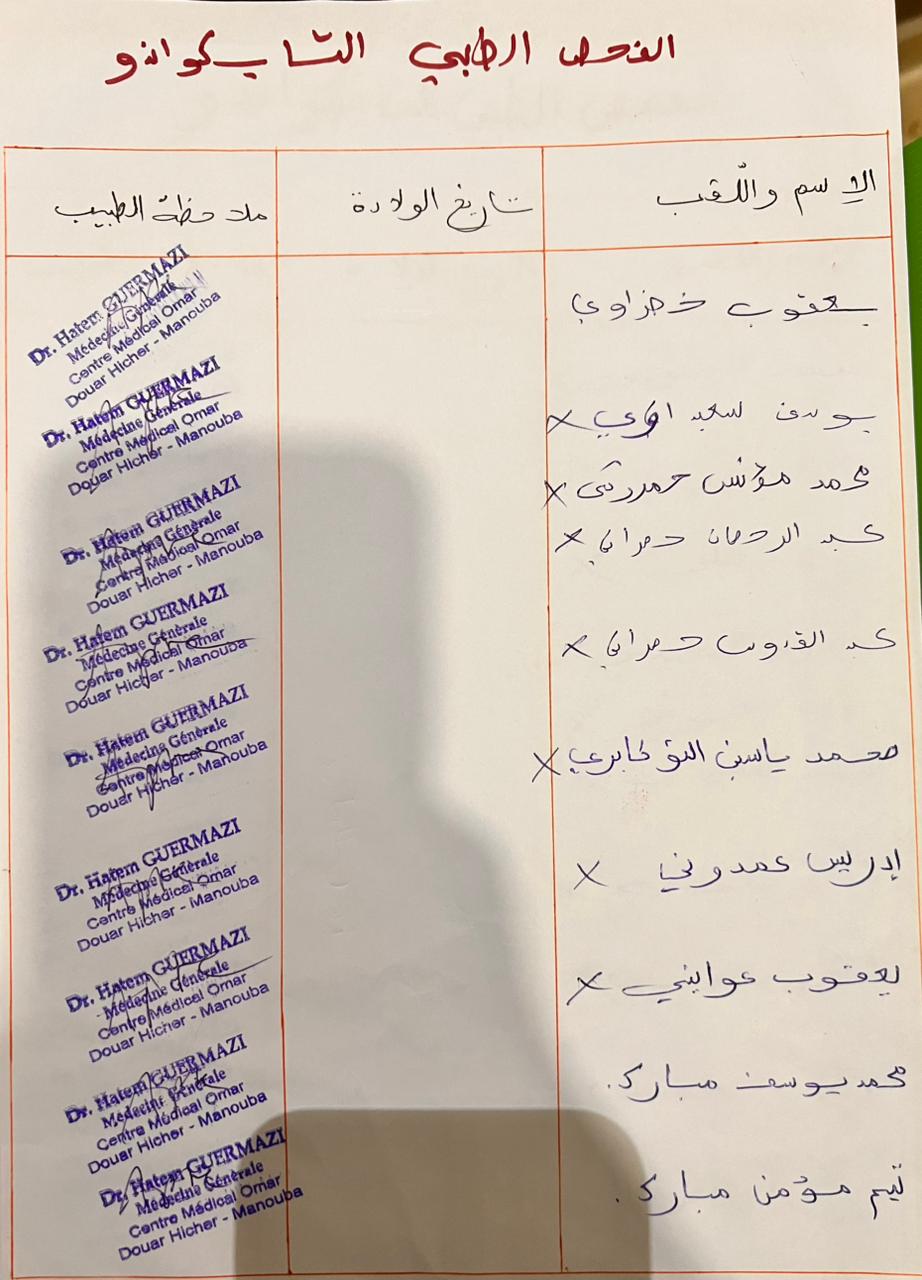 الفحص الطبي التايكواندو
الاسم واللّقب تاريخ الولادة ملاحظة الطبيب
يعقوب خضراوي
Dr. Hatem GUERMAZI
Médecine Générale
Centre Médical Omar
Douar Hicher - Manouba
يوسف X
Dr. Hatem GUERMAZI
Médecine Générale
Centre Médical Omar
Douar Hicher - Manouba
محمد مؤنس X
عبد الرحمان حمراني X
Dr. Hatem GUERMAZI
Médecine Générale
Centre Médical Omar
Douar Hicher - Manouba
عبد القدوس حمراني X
Dr. Hatem GUERMAZI
Médecine Générale
Centre Médical Omar
Douar Hicher - Manouba
محمد ياسين التوكابري X
Dr. Hatem GUERMAZI
Médecine Générale
Centre Médical Omar
Douar Hicher - Manouba
إدريس عمدوني X
Dr. Hatem GUERMAZI
Médecine Générale
Centre Médical Omar
Douar Hicher - Manouba
يعقوب عوايني X
Dr. Hatem GUERMAZI
Médecine Générale
Centre Médical Omar
Douar Hicher - Manouba
محمد يوسف مبارك.
Dr. Hatem GUERMAZI
Médecine Générale
Centre Médical Omar
Douar Hicher - Manouba
تيم مؤمن مبارك.
Dr. Hatem GUERMAZI
Médecine Générale
Centre Médical Omar
Douar Hicher - Manouba